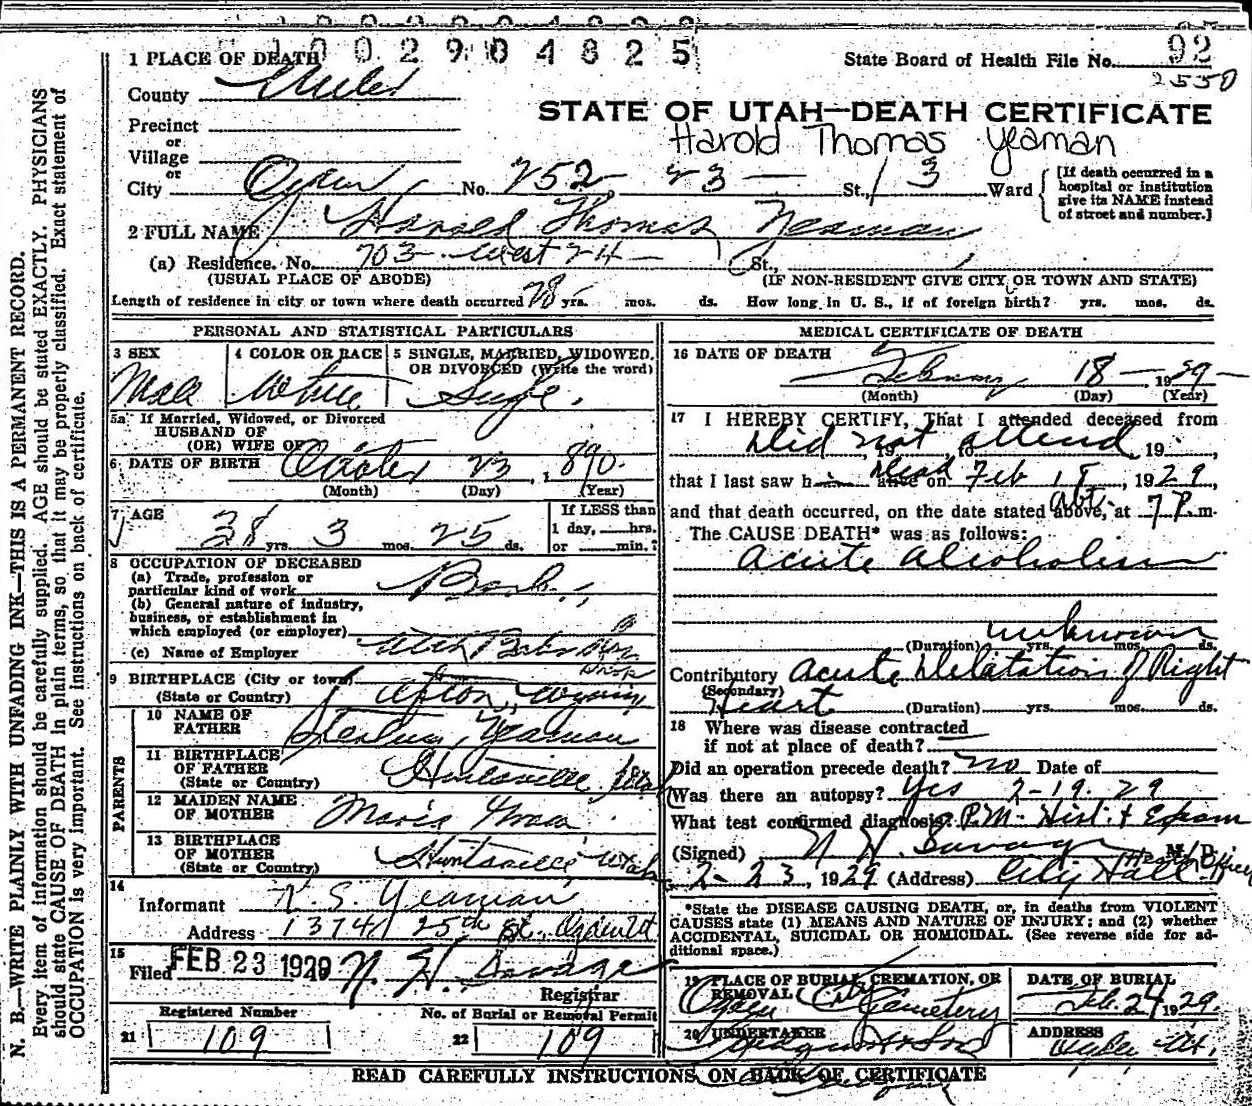 1 0 0 2 9 0 4 8 2 5
1 PLACE OF DEATH
State Board of Health File No. 92
2550
County Weber
STATE OF UTAH—DEATH CERTIFICATE
Precinct
or
Harold Thomas Yeaman
Village
or
City Ogden No. 252 23 — St., 3 Ward
[If death occurred in a hospital or institution give its NAME instead of street and number.]
2 FULL NAME Harold Thomas Yeaman
(a) Residence. No. 703 West 24 — St.,
(USUAL PLACE OF ABODE) (IF NON-RESIDENT GIVE CITY OR TOWN AND STATE)
Length of residence in city or town where death occurred 28 yrs. mos. ds. How long in U. S., if of foreign birth? yrs. mos. ds.
PERSONAL AND STATISTICAL PARTICULARS
3 SEX
Male
4 COLOR OR RACE
White
5 SINGLE, MARRIED, WIDOWED, OR DIVORCED (Write the word)
Single.
5a If Married, Widowed, or Divorced
HUSBAND OF
(OR) WIFE OF
6 DATE OF BIRTH October 23, 1890.
(Month) (Day) (Year)
7 AGE
38 yrs. 3 mos. 25 ds.
If LESS than
1 day, hrs.
or min.?
8 OCCUPATION OF DECEASED
(a) Trade, profession or
particular kind of work
(b) General nature of industry,
business, or establishment in
which employed (or employer)
(c) Name of Employer
9 BIRTHPLACE (City or town)
(State or Country) Afton, Wyoming
PARENTS
10 NAME OF
FATHER Yeaman
11 BIRTHPLACE
OF FATHER
(State or Country) Huntsville, Utah
12 MAIDEN NAME
OF MOTHER
13 BIRTHPLACE
OF MOTHER
(State or Country) Huntsville Utah
14
Informant S. Yeaman
Address 1374 25th St. Ogden Ut
15
Filed FEB 23 1929 N. H. Savage
Registrar
Registered Number
21 109
No. of Burial or Removal Permit
22 109
MEDICAL CERTIFICATE OF DEATH
16 DATE OF DEATH
February 18 — 1929 —
(Month) (Day) (Year)
17 I HEREBY CERTIFY, That I attended deceased from
Did not attend, 19 to , 19
that I last saw h alive on Dead Feb 18, 1929,
and that death occurred, on the date stated above, at abt. 7 P. m.
The CAUSE DEATH* was as follows:
Acute Alcoholism
unknown
(Duration) yrs. mos. ds.
Contributory Acute Delatation of Right
(Secondary)
Heart (Duration) yrs. mos. ds.
18 Where was disease contracted
if not at place of death?
Did an operation precede death? no Date of
Was there an autopsy? Yes 2-19-29
What test confirmed diagnosis? P.M. Hist. + Exam
(Signed) N. H. Savage M. D.
Health Officer
2-23, 1929 (Address) City Hall
*State the DISEASE CAUSING DEATH, or, in deaths from VIOLENT
CAUSES state (1) MEANS AND NATURE OF INJURY; and (2) whether
ACCIDENTAL, SUICIDAL OR HOMICIDAL. (See reverse side for ad-
ditional space.)
19 PLACE OF BURIAL, CREMATION, OR
REMOVAL
Ogden City Cemetery
DATE OF BURIAL
Feb. 24 1929.
20 UNDERTAKER
ADDRESS
Ogden Ut.
READ CAREFULLY INSTRUCTIONS ON BACK OF CERTIFICATE
N. B.—WRITE PLAINLY WITH UNFADING INK—THIS IS A PERMANENT RECORD.
Every item of information should be carefully supplied. AGE should be stated EXACTLY. PHYSICIANS
should state CAUSE OF DEATH in plain terms, so that it may be properly classified. Exact statement of
OCCUPATION is very important. See instructions on back of certificate.